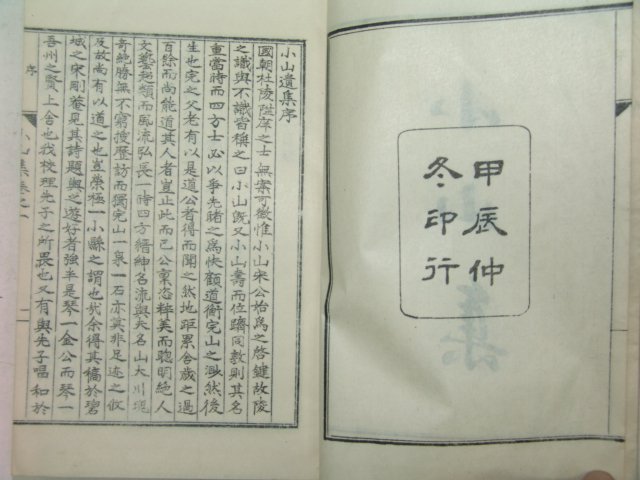 甲辰仲
冬印行
小山遺集序
國朝杜陵隱席之士無案可徵惟小山宋公始爲之啓鍵故陵
之識與不識皆稱之曰小山旣又小山壽而位躋同敦則其名
重當時而四方士必以爭先睹之爲快顧道衡完山之淵然後
生也完之父老有以是道公者得而聞之然地距累舍歲之過
百餘而尚能道其人者豈止此而已公稟恣粹美而聰明絶人
文藝超類而風流弘長一時四方縉紳名流與夫名山大川瑰
奇絶勝無不窮搜歷訪而獨完山一泉一石亦莫非足迹之攸
及故尚有以道之也豈榮極一小縣之謂也哉余得其稿於碧
城之宋剛菴見其詩題與之遊好者強半是琴一金公而琴一
吾州之賢上舍也我校理先子之所畏也又有與先子唱和於
小山集卷之一
序
一